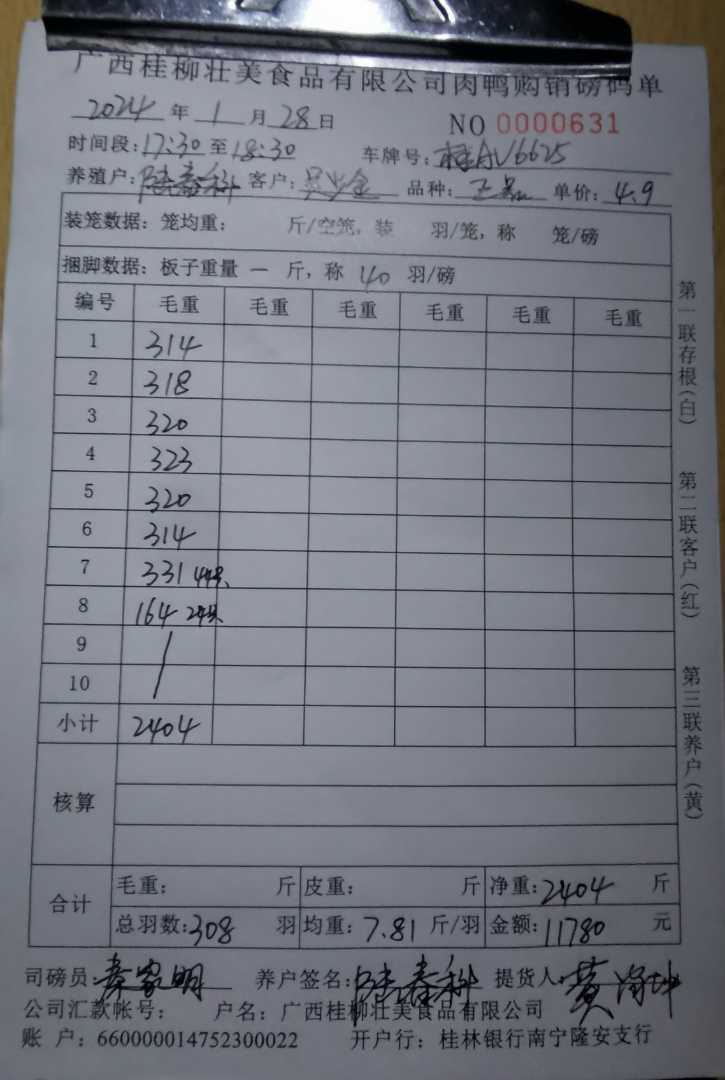 广西桂柳壮美食品有限公司肉鸭购销磅码单
2024 年 1 月 28 日 NO 0000631
时间段: 17:30 至 18:30 车牌号: 桂AV6625
养殖户: 陆春科 客户: 吴少金 品种: 单价: 4.9
装笼数据: 笼均重: 斤/空笼, 装 羽/笼, 称 笼/磅
捆脚数据: 板子重量 一 斤, 称 40 羽/磅
编号 毛重 毛重 毛重 毛重 毛重 毛重
1 314
2 318
3 320
4 323
5 320
6 314
7 331
8 164
9
10
小计 2404
核算
合计 毛重: 斤 皮重: 斤 净重: 2404 斤
总羽数: 308 羽 均重: 7.81 斤/羽 金额: 11780 元
司磅员: 家明 养户签名: 陆春科 提货人: 黄
公司汇款帐号: 户名: 广西桂柳壮美食品有限公司
账 户: 660000014752300022 开户行: 桂林银行南宁隆安支行
第一联存根(白) 第二联客户(红) 第三联养户(黄)